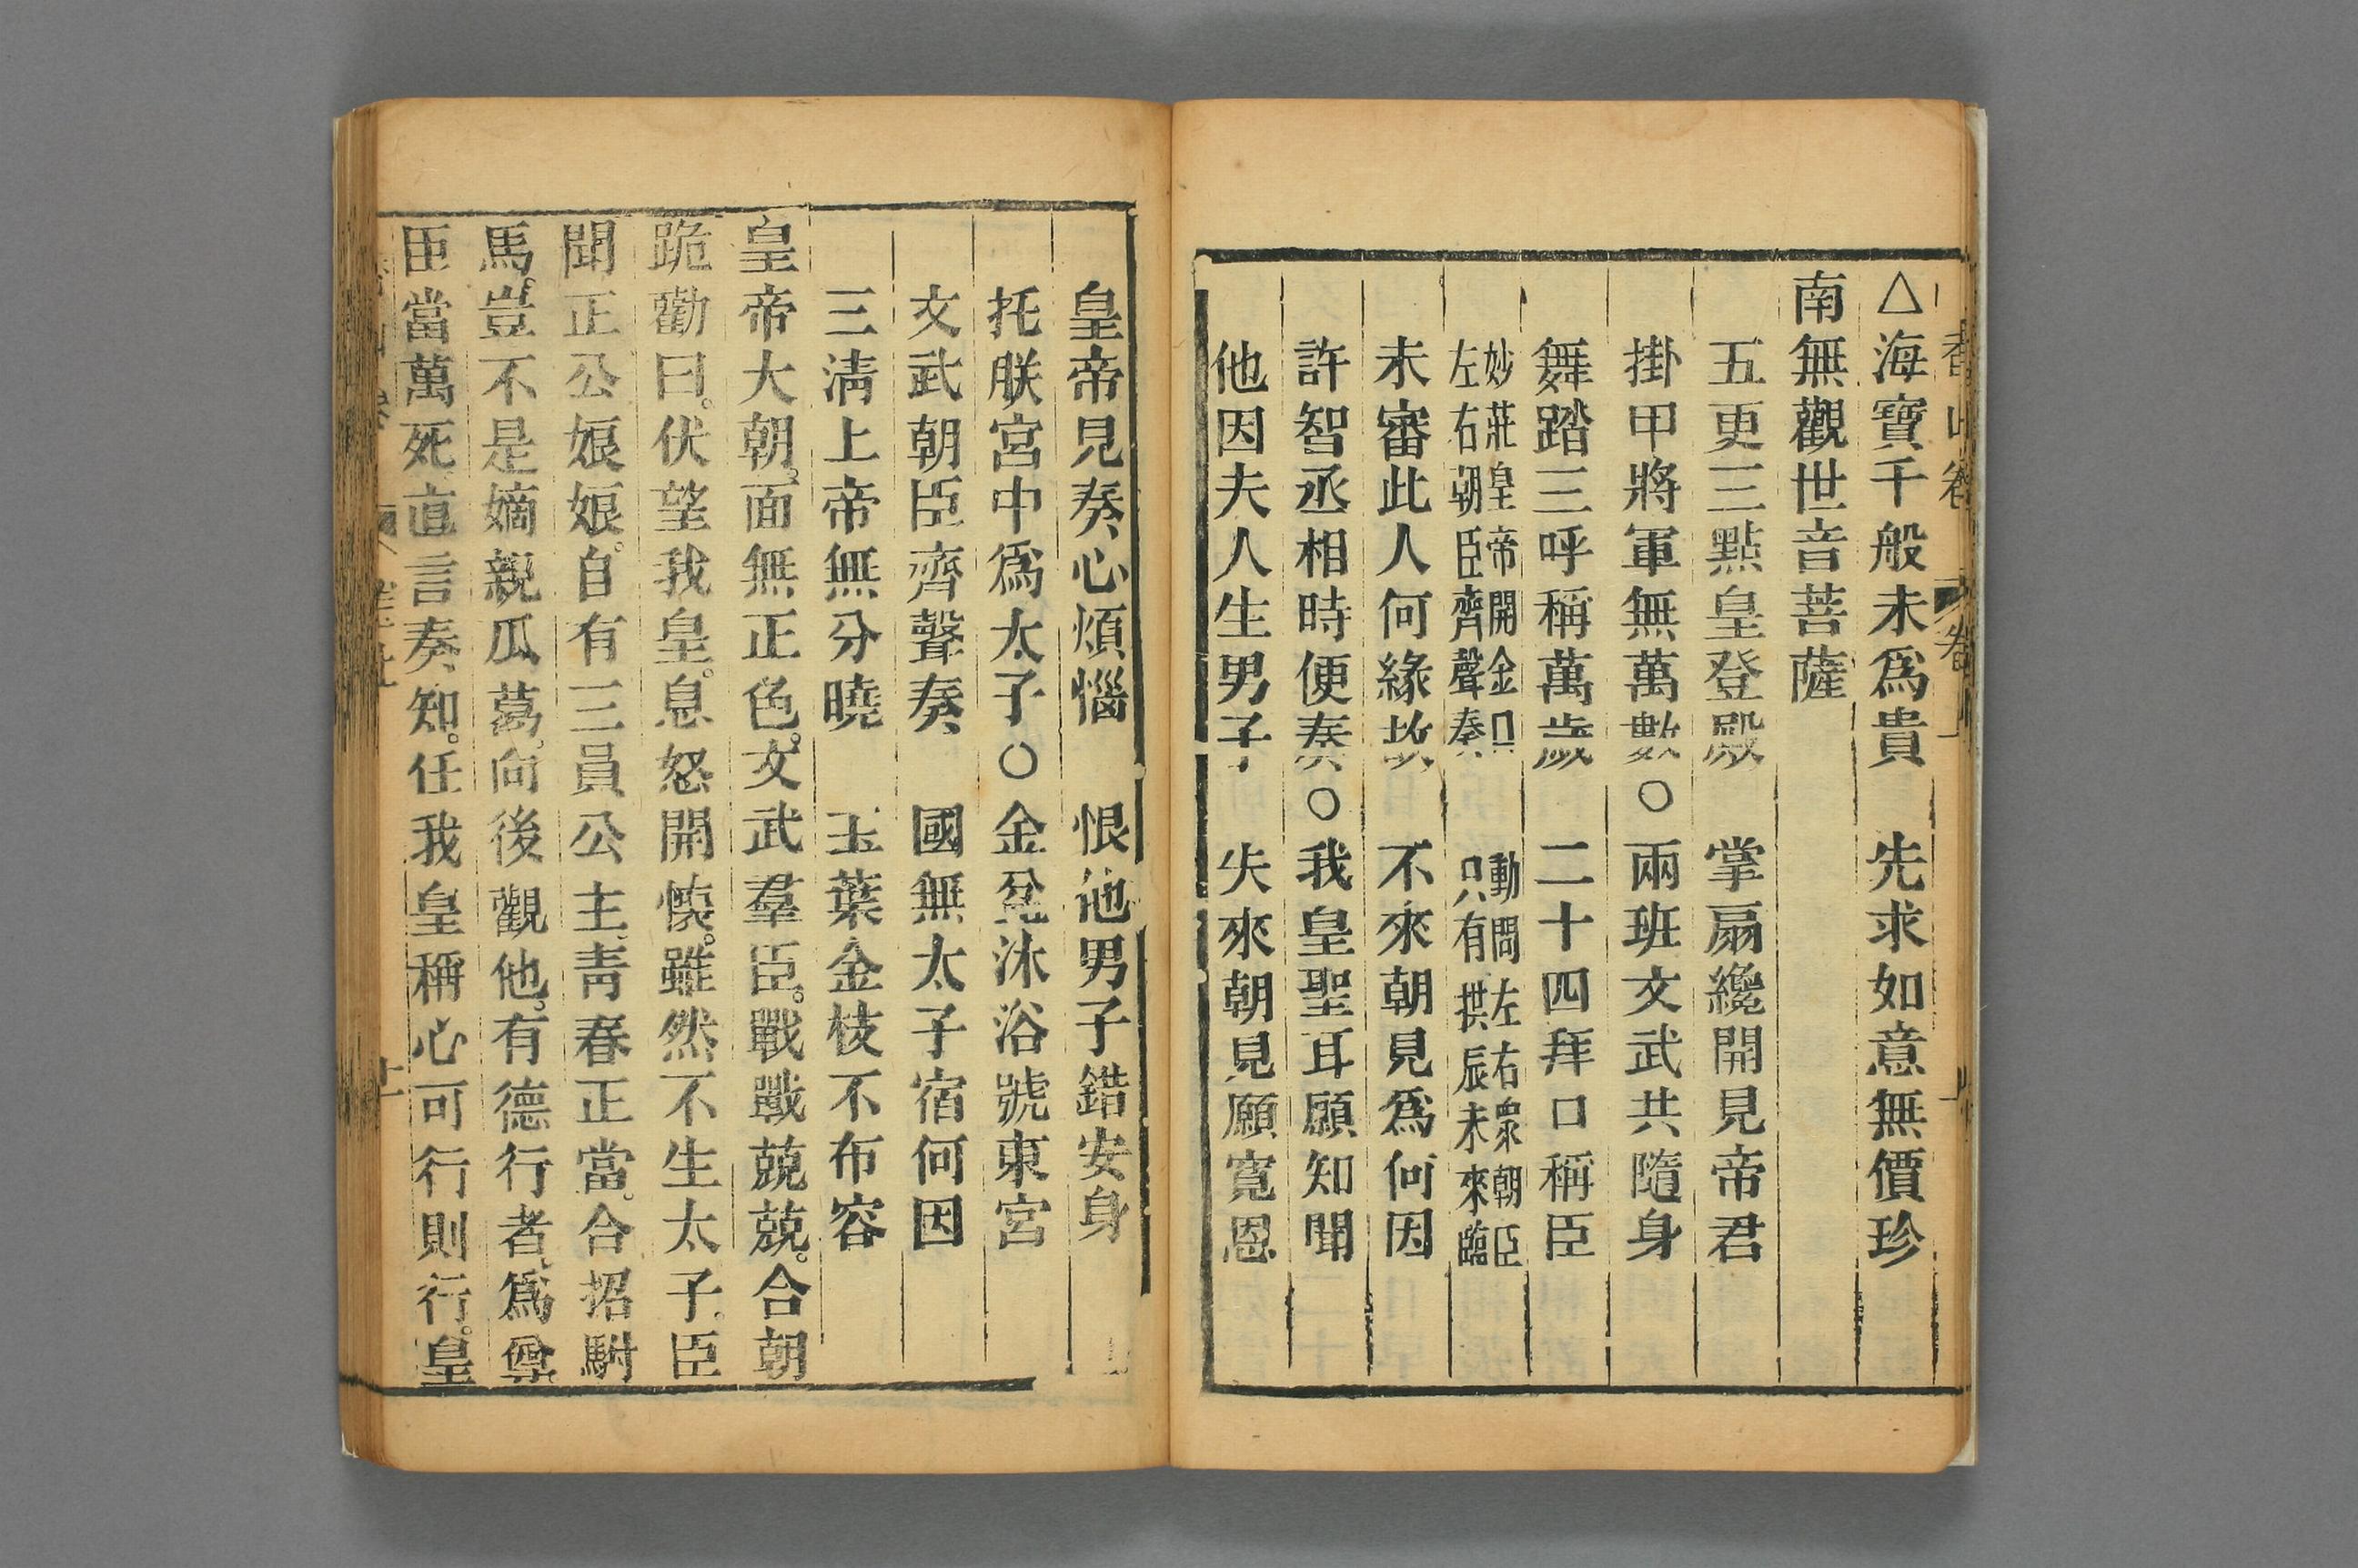 △海寶千般未爲貴　先求如意無價珍
南無觀世音菩薩
五更三點皇登殿　掌扇纔開見帝君
掛甲將軍無萬數○兩班文武共隨身
舞踏三呼稱萬歲　二十四拜口稱臣
妙莊皇帝開金口　動問左右衆朝臣
左右朝臣齊聲奏　只有拱辰未來臨
未審此人何緣故　不來朝見爲何因
許智丞相時便奏○我皇聖耳願知聞
他因夫人生男子　失來朝見願寬恩
皇帝見奏心煩惱　恨他男子錯安身
托朕宮中爲太子○金盆沐浴號東宮
文武朝臣齊聲奏　國無太子宿何因
三淸上帝無分曉　玉葉金枝不布容
皇帝大朝。面無正色。文武羣臣。戰戰兢兢。合朝
跪勸曰。伏望我皇。息怒開懷。雖然不生太子。臣
聞正公娘娘。自有三員公主。靑春正當。合招駙
馬。豈不是嫡親瓜葛。向後觀他。有德行者。爲尊
臣當萬死直言奏知。任我皇稱心可行則行。皇